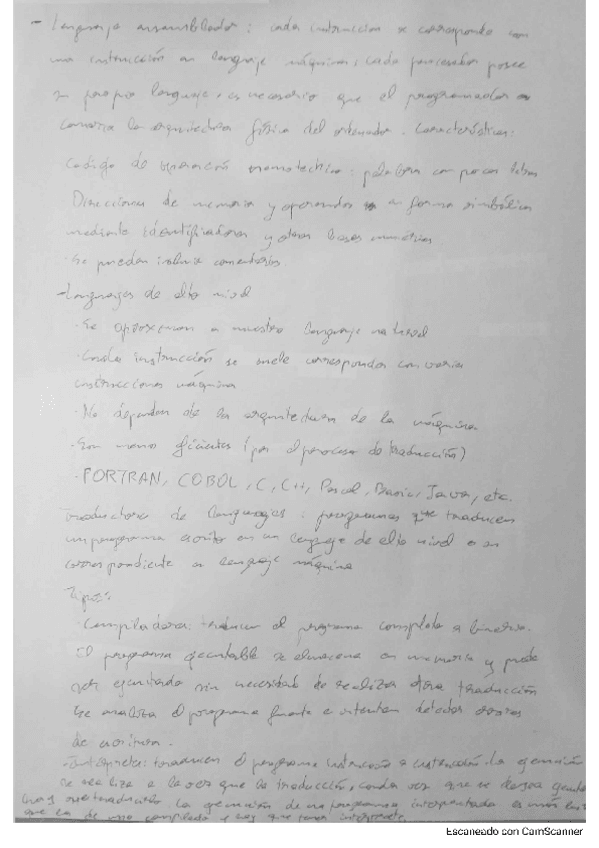 - Lenguaje ensamblador: cada instrucción se corresponde con
una instrucción en lenguaje máquina, cada procesador posee
su propio lenguaje, es necesario que el programador
conozca la arquitectura física del ordenador. Características:
Código de operación nemotécnico: palabra con pocas letras
Direcciones de memoria y operandos en forma simbólica
mediante identificadores y otras bases numéricas
- Se pueden incluir comentarios
- Lenguajes de alto nivel
· Se aproximan a nuestro lenguaje natural
· Cada instrucción se suele corresponder con varias
instrucciones máquina
· No dependen de la arquitectura de la máquina
· Son menos eficientes (por el proceso de traducción)
· FORTRAN, COBOL, C, C++, Pascal, Basic, Java, etc.
Traductores de lenguajes: programas que traducen
un programa escrito en un lenguaje de alto nivel a su
correspondiente en lenguaje máquina
Tipos:
· Compiladores: traducen el programa completo a binario.
El programa ejecutable se almacena en memoria y puede
ser ejecutado sin necesidad de realizar otra traducción
Se analiza el programa fuente e intentan detectar errores
de escritura.
· Intérpretes: traducen el programa instrucción a instrucción. La ejecución
se realiza a la vez que la traducción, cada vez que se desea ejecutar
hay que traducirlo. La ejecución de un programa interpretado es más lenta
que la de uno compilado y hay que tener intérprete.
Escaneado con CamScanner